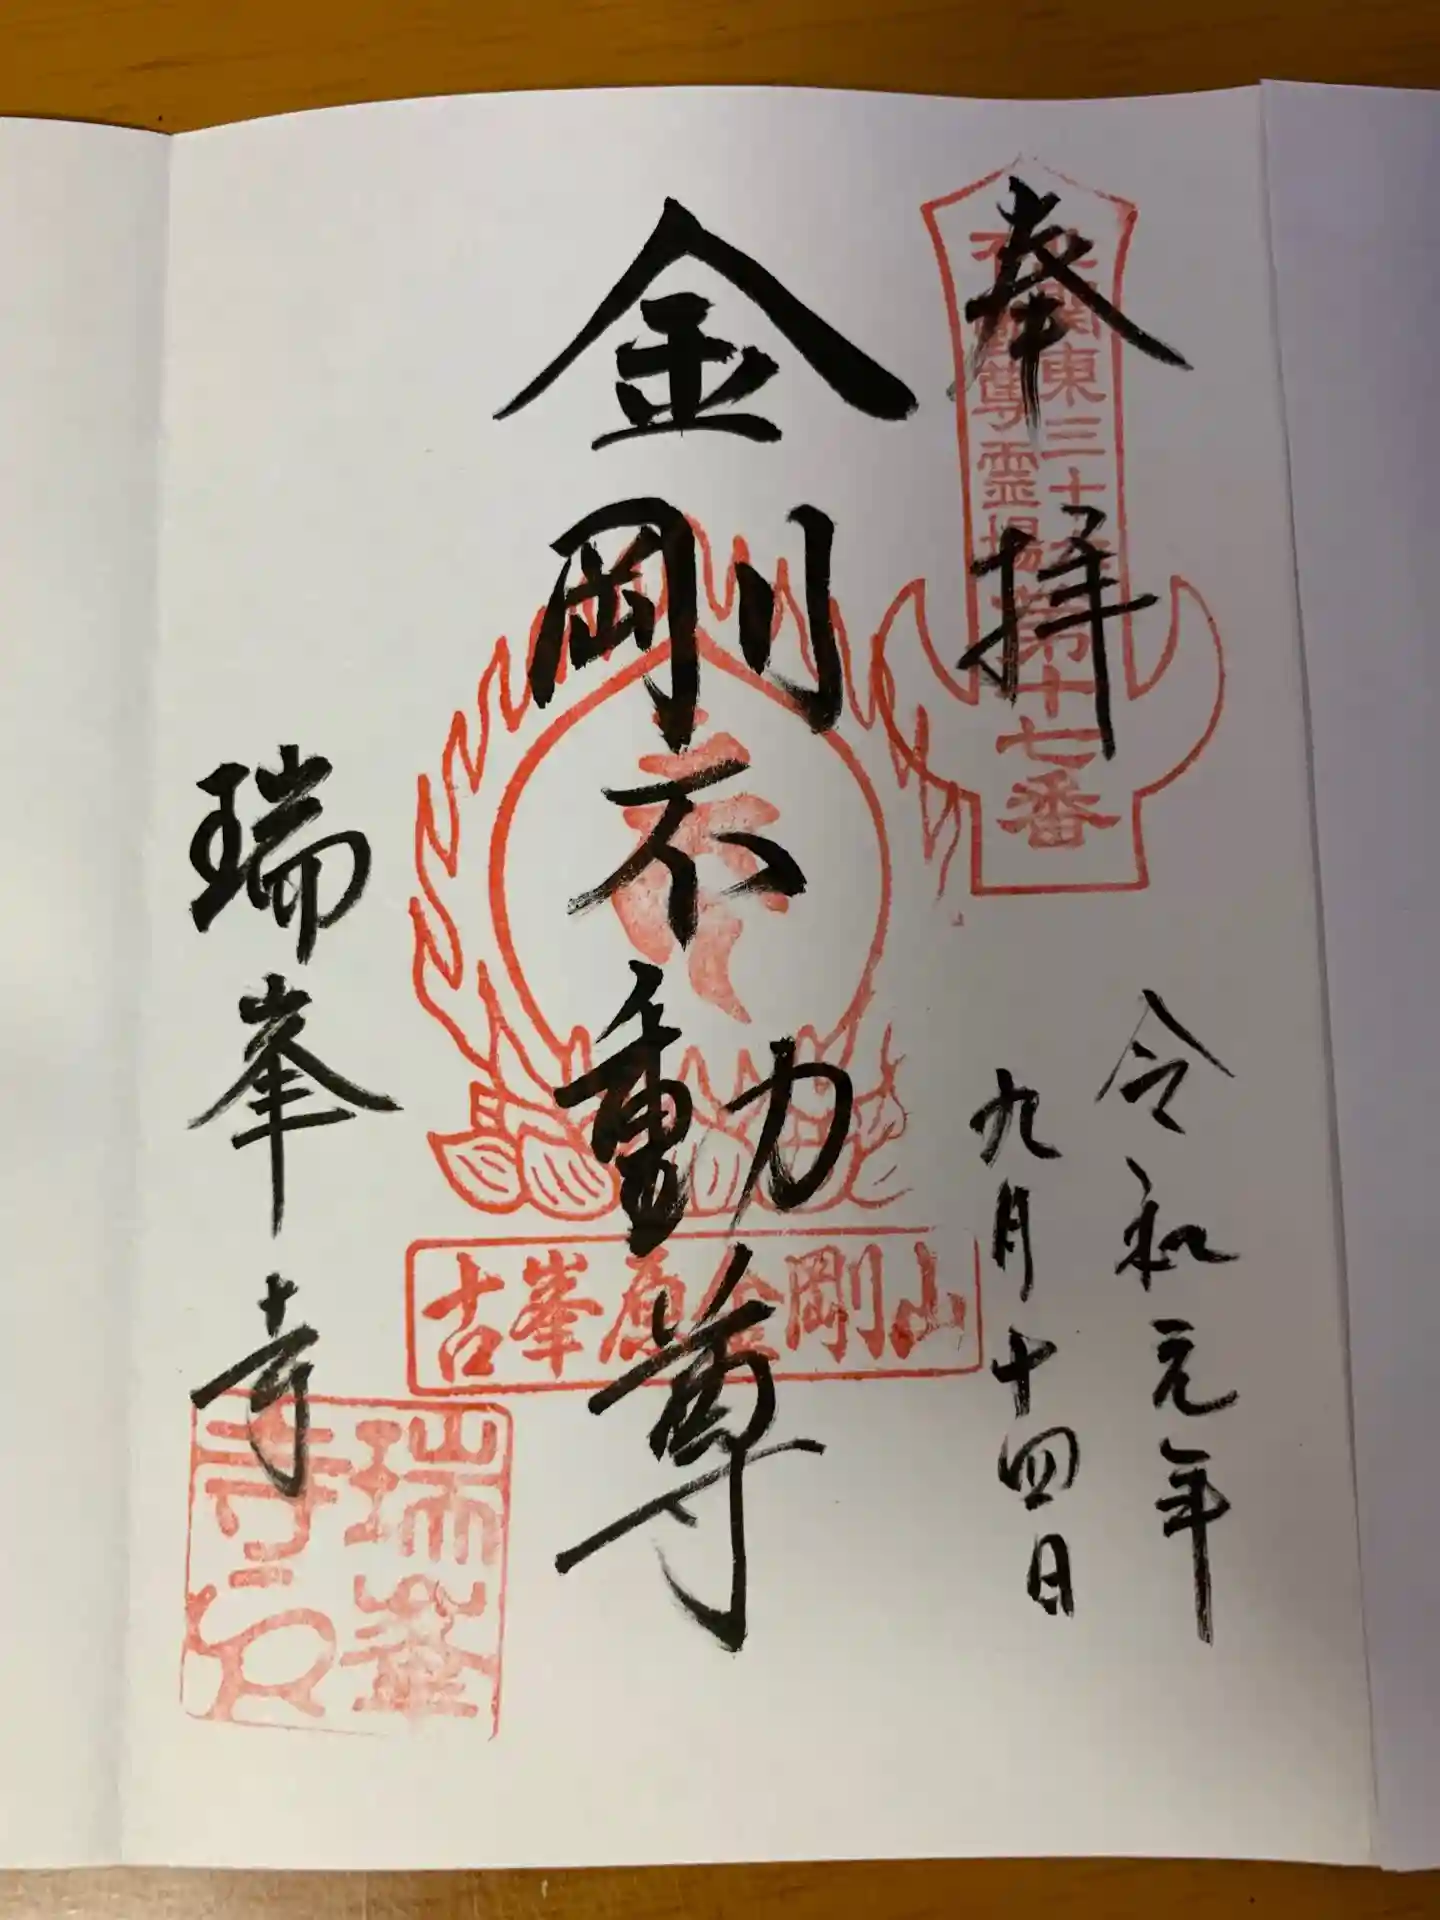 奉拝
北関東三十六
不動尊霊場
第十七番
令和元年
九月十四日
金剛不動尊
古峯原金剛山
瑞峯寺
瑞峯
寺